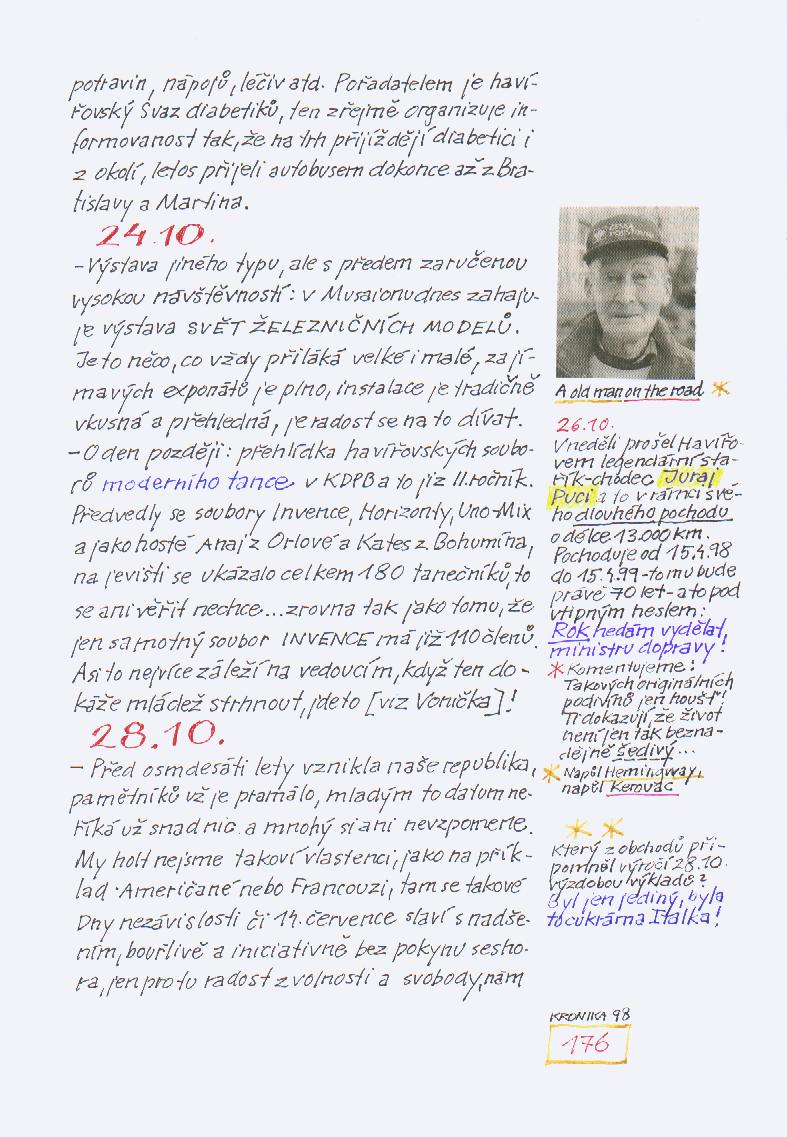 potravin, nápojů, léčiv atd. Pořadatelem je haví-
řovský Svaz diabetiků, ten zřejmě organizuje in-
formovanost tak, že na trh přijíždějí diabetici i
z okolí, letos přijeli autobusem dokonce až z Bra-
tislavy a Martina.
24.10.
- Výstava jiného typu, ale s předem zaručenou
vysokou návštěvností: v Musaionu dnes zahaju-
je výstava SVĚT ŽELEZNIČNÍCH MODELŮ.
Je to něco, co vždy přiláká velké i malé, zají-
mavých exponátů je plno, instalace je tradičně
vkusná a přehledná, je radost se na to dívat.
- O den později: přehlídka havířovských soubo-
rů moderního tance v KDPB a to již II. ročník.
Předvedly se soubory Invence, Horizonty, Uno-Mix
a jako hosté Anaj z Orlové a Kates z Bohumína,
na jevišti se ukázalo celkem 180 tanečníků, to
se ani věřit nechce... zrovna tak jako tomu, že
jen samotný soubor INVENCE má již 110 členů.
Asi to nejvíce záleží na vedoucím, když ten do-
káže mládež strhnout, jde to [viz Vonička]!
28.10.
- Před osmdesáti lety vznikla naše republika,
pamětníků už je pramálo, mladým to datum ne-
říká už snad nic a mnohý si ani nevzpomene.
My holt nejsme takoví vlastenci, jako na přík-
lad Američané nebo Francouzi, tam se takové
Dny nezávislosti či 14. července slaví s nadše-
ním, bouřlivě a iniciativně bez pokynu sesho-
ra, jen pro tu radost z volnosti a svobody, nám
A old man on the road *
26.10.
V neděli prošel Havířo-
vem legendární sta-
řík-chodec Juraj
Puci a to v rámci své-
ho dlouhého pochodu
o délce 13.000 km.
Pochoduje od 15.4.98
do 15.4.99 - to mu bude
právě 70 let - a to pod
vtipným heslem:
Rok nedám vydělat,
ministru dopravy!
* Komentujeme:
Takových originálních
podivínů jen houšť!
Ti dokazují, že život
není jen tak bezna-
dějně šedivý...
* Napůl Hemingway,
napůl Kerouac
* *
Který z obchodů při-
pomněl výročí 28.10.
výzdobou výkladů?
Byl jen jediný, byla
to cukrárna Italka!
KRONIKA 98
176